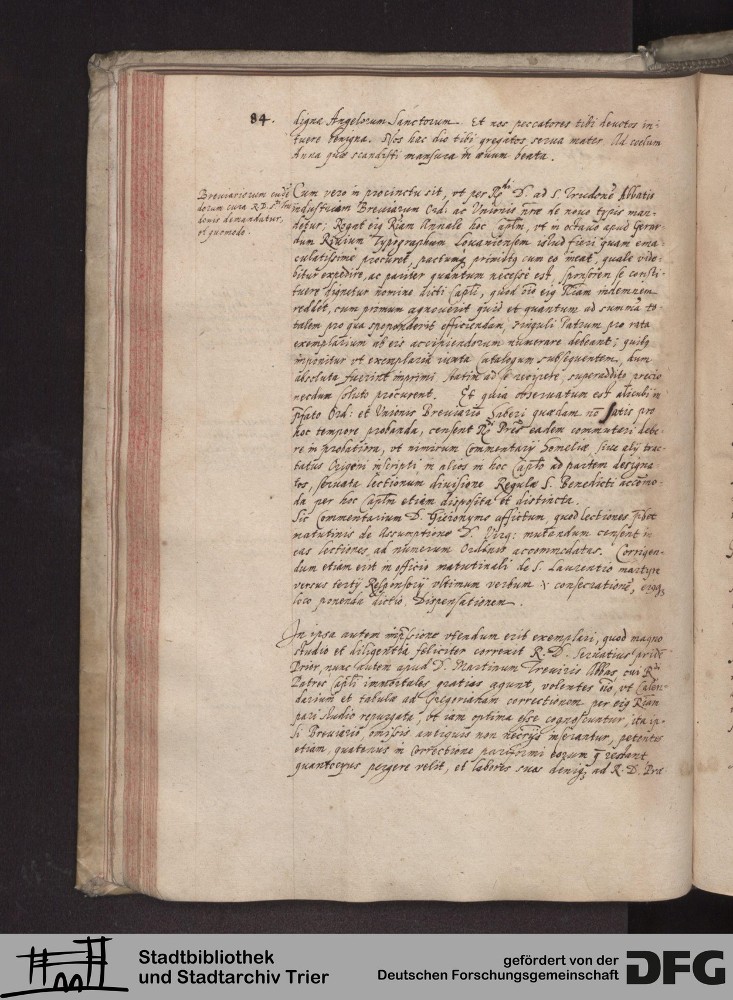 84.
digna Angelorum Sanctorum. Et nos peccatores tibi deuotos in-
tuere benigna. Nos hac die tibi gregatos, serua mater. Ad coelum
Anna quae scandisti mansura in aeuum beata.
Breuiariorum
cura R.D. Sti Tru
donis demandatur,
et quomodo.
Cum vero in procinctu sit, vt per Rdū D. ad S. Trudonē Abbatis
industriam Breuiarium Ord. ac Vnionis nr̄ae de nouo typis man-
detur; Rogat Riam Annale hoc caplm, vt in octauo apud Gerar
dum Riuium Typographum Louaniensem istud fieri quam ema-
culatissime procuret, pactumq̃ primitus cum eo ineat, quale vide-
bitur expedire, ac pariter quantum necesse est, sponsorem se consti-
tuere dignetur nomine dicti Capli, quod Riam indemnem
reddet, cum primum agnouerit quid et quantum ad summā to-
talem pro qua spoponderit efficiendam, singuli Patrum pro rata
exemplarium ab eis accipiendorum numerare debeant; quibq
imponitur vt exemplaria iuxta Catalogum subsequentem, dum
absoluta fuerint imprimi statim ad se recipere, superaddito precio
necdum soluto procurent. Et quia obseruatum est alicubi in
Ord: et Vnionis Breuiario haberi quaedam nō satis pro
hoc tempore probanda, censent Rdi Pres eadem commutari debe-
re in probatiora, vt nimirum Commentarij Homeliae siue alij trac-
tatus Origeni inscripti in alios in hoc Caplo ad partem designa-
tos, seruata lectionum diuisione Regulae S. Benedicti accōmo-
da per hoc Caplm etiam disposita et distincta.
Sic Commentarium D. Hieronymo affictum, quod lectiones
matutinis de Assumptione D. Virg: mutandum censent in
eas lectiones ad numerum Ordinis accommodatas. Corrigen-
dum etiam erit in officio matutinali de S. Laurentio martyre
versus tertij Responsorij vltimum verbum consecrationē, eiusq̃
loco ponenda dictio, Dispensationem.
In ipsa autem imp̄ssione vtendum erit exemplari, quod magno
studio et diligentia feliciter correxit R. D. Seruatius pridē
Prior, nunc autem apud D. Martinum Treuiris Abbas, cui Rdi
Patres Capli immortales gratias agunt, volentes vt Calen-
darium et tabulae ad Gregorianam correctionem per Riam
pari studio repurgata, vt iam optima esse cognoscuntur, ita ip-
si Breuiario, omissis antiquis non necrijs inserantur, petentes
etiam, quatenus in correctione eorum q̃ restant
quantocyus pergere velit, et labores suos deniq̃ ad R. D. Prae
Stadtbibliothek
und Stadtarchiv Trier
gefördert von der
Deutschen Forschungsgemeinschaft
DFG